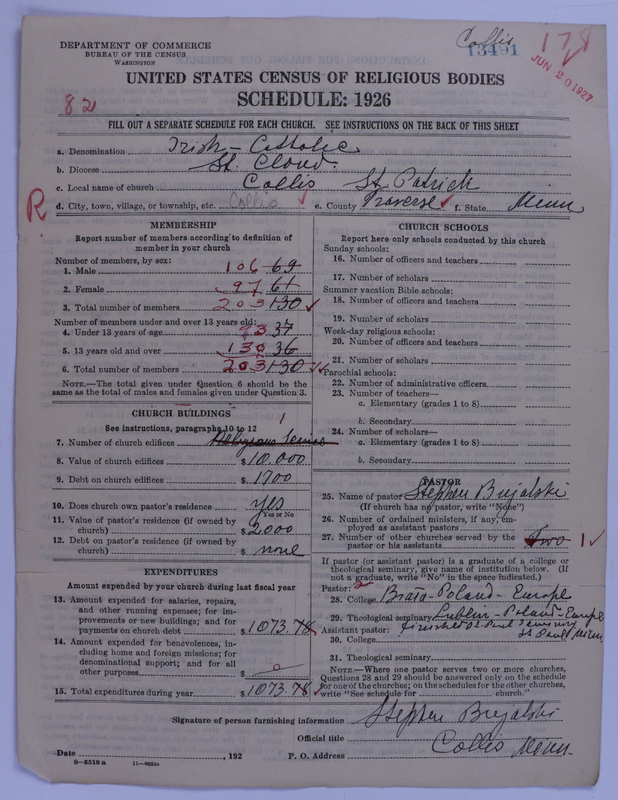 Collis
13491
178
JUN 20 1927
DEPARTMENT OF COMMERCE
BUREAU OF THE CENSUS
WASHINGTON
UNITED STATES CENSUS OF RELIGIOUS BODIES
SCHEDULE: 1926
82
FILL OUT A SEPARATE SCHEDULE FOR EACH CHURCH. SEE INSTRUCTIONS ON THE BACK OF THIS SHEET
a. Denomination Irish - Catholic
b. Diocese St. Cloud.
c. Local name of church Collis St. Patrick
R
d. City, town, village, or township, etc. Collis e. County Traverse f. State Minn
MEMBERSHIP
Report number of members according to definition of
member in your church
Number of members, by sex:
1. Male 106 69
2. Female 97 61
3. Total number of members 203 130
Number of members under and over 13 years old:
4. Under 13 years of age 73 37
5. 13 years old and over 130 36
6. Total number of members 203 130
NOTE.—The total given under Question 6 should be the
same as the total of males and females given under Question 3.
CHURCH BUILDINGS
See instructions, paragraphs 10 to 12
1
7. Number of church edifices
8. Value of church edifices $10.000
9. Debt on church edifices $1700
10. Does church own pastor's residence yes
Yes or No
11. Value of pastor's residence (if owned by
church) $2000
12. Debt on pastor's residence (if owned by
church) $none
EXPENDITURES
Amount expended by your church during last fiscal year
13. Amount expended for salaries, repairs,
and other running expenses; for im-
provements or new buildings; and for
payments on church debt $1073.78
14. Amount expended for benevolences, in-
cluding home and foreign missions; for
denominational support; and for all
other purposes $0
15. Total expenditures during year $1073.78
CHURCH SCHOOLS
Report here only schools conducted by this church
Sunday schools:
16. Number of officers and teachers
17. Number of scholars
Summer vacation Bible schools:
18. Number of officers and teachers
19. Number of scholars
Week-day religious schools:
20. Number of officers and teachers
21. Number of scholars
Parochial schools:
22. Number of administrative officers
23. Number of teachers—
a. Elementary (grades 1 to 8)
b. Secondary
24. Number of scholars—
a. Elementary (grades 1 to 8)
b. Secondary
PASTOR
25. Name of pastor Stephen Bujalski
(If church has no pastor, write "None")
26. Number of ordained ministers, if any, em-
ployed as assistant pastors
27. Number of other churches served by the
pastor or his assistants Two 1
If pastor (or assistant pastor) is a graduate of a college or
theological seminary, give name of institution below. (If
not a graduate, write "No" in the space indicated.)
Pastor: 2
28. College Poland - Europe
29. Theological seminary Lublin - Poland - Europe
Assistant pastor: finished St. Paul Seminary
30. College St Paul Minn.
31. Theological seminary
NOTE.—Where one pastor serves two or more churches,
Questions 28 and 29 should be answered only on the schedule
for one of the churches; on the schedules for the other churches,
write "See schedule for church."
Signature of person furnishing information Stephen Bujalski
Official title
Date , 192 P. O. Address Collis Minn.
8—5518 a